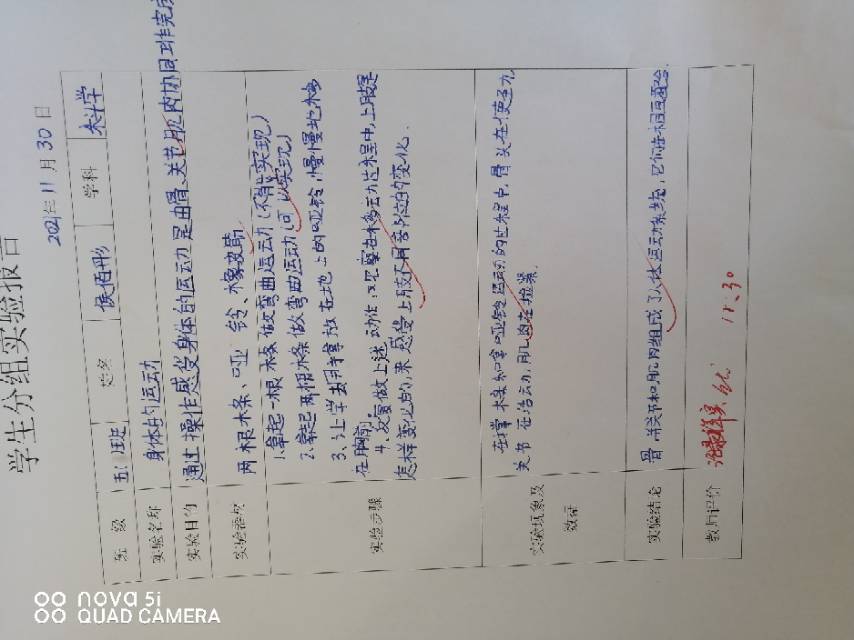 学生分组实验报告
2021年11月30日
班级 五(1)班 姓名 侯佰彤 学科 科学
实验名称 身体的运动
实验目的 通过操作感受身体的运动是由骨、关节、肌肉协同工作完成
实验器材 两根木条、哑铃、橡皮筋
实验步骤 1.拿起一根木条做弯曲运动(不能实现)
2.拿起两根木条做弯曲运动(可以实现)
3、让学生用手拿放在地上的哑铃,慢慢地移
在胸前
4.反复做上述动作,观察在移动过程中,上肢是
怎样变化的,来感受上肢不同部位的变化.
实验现象及
数据
在撑木条和拿哑铃运动的过程中,骨头在使劲,
关节在活动,肌肉在拉紧.
实验结论 骨、关节和肌肉组成了人体运动系统,它们在相互配合.
教师评价 记录详实 优 11.30
nova 5i
QUAD CAMERA